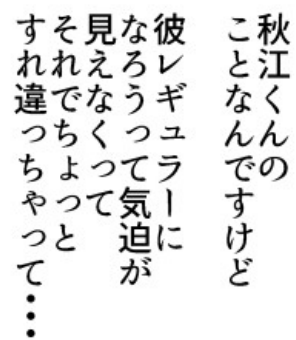 秋江くんの
ことなんですけど
彼レギュラーに
なろうって気迫が
見えなくって
それでちょっと
すれ違っちゃって・・・